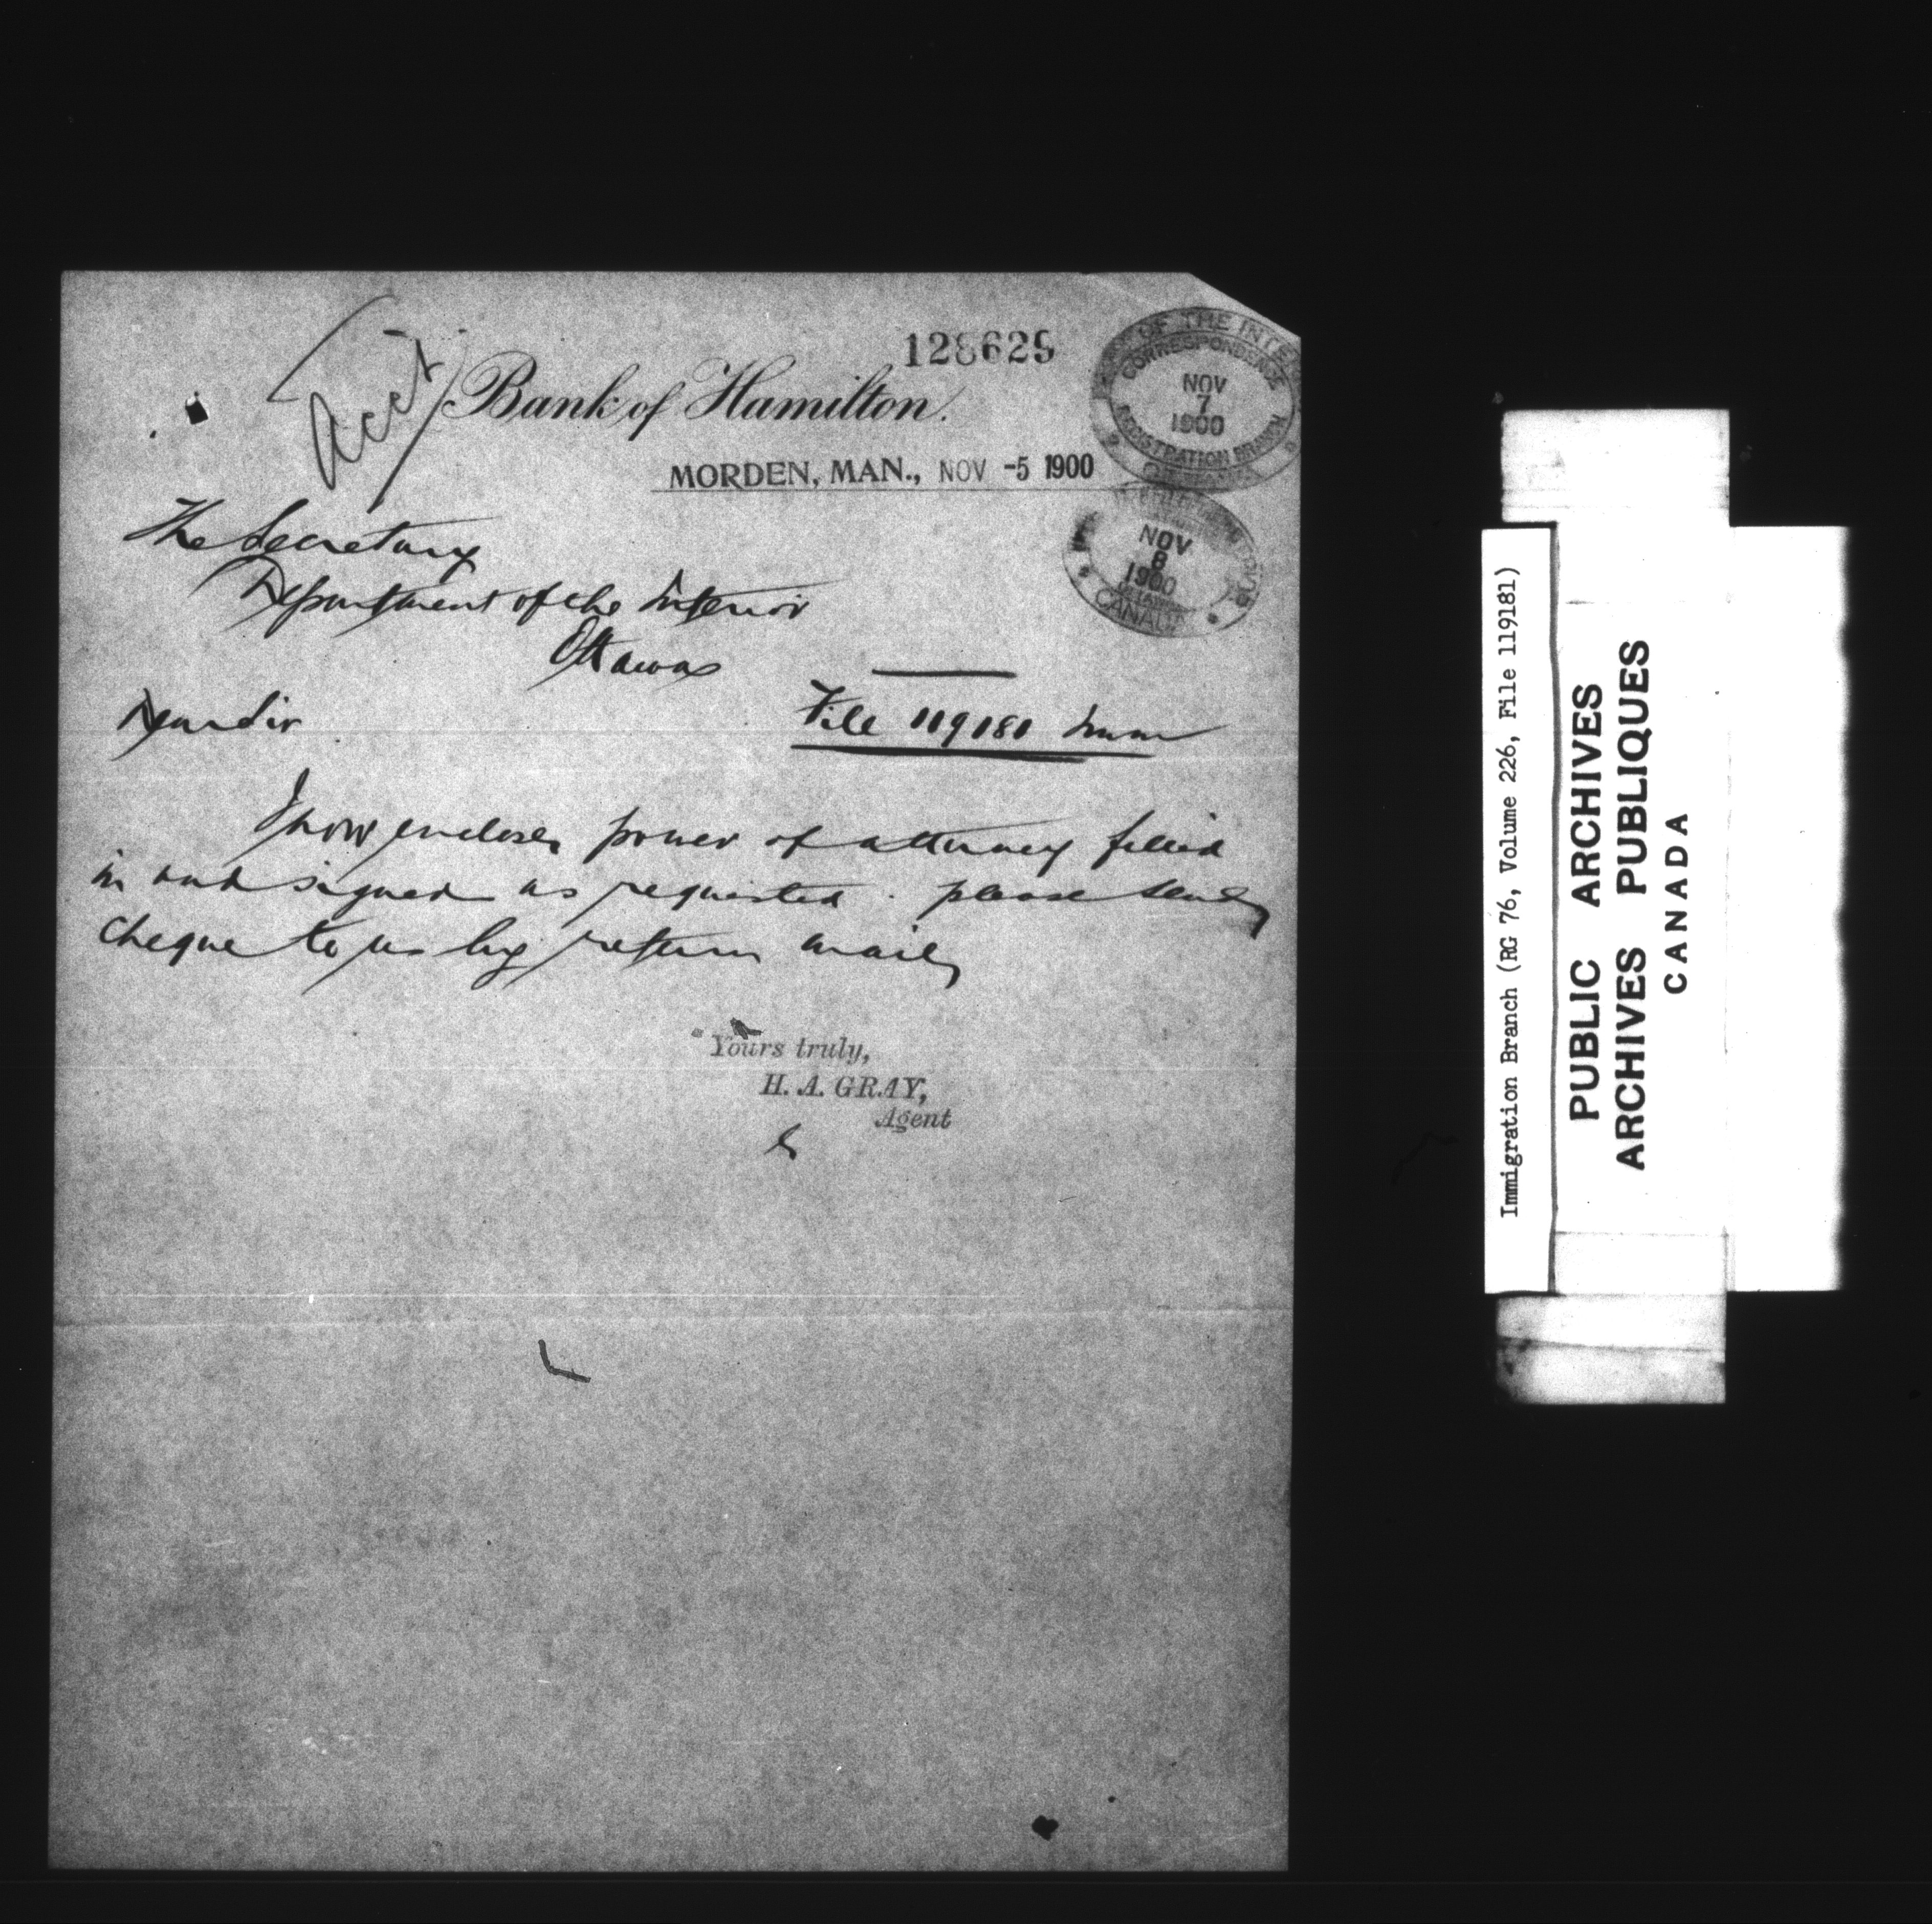 128629
Acct
Bank of Hamilton.
MORDEN, MAN., NOV -5 1900
OF THE INTE
CORRESPONDENCE
NOV
7
1900
REGISTRATION BRANCH
NOV
8
1900
CANADA
The Secretary
Department of the Interior
Ottawa
Dear Sir
File 119181 Imm
I now enclose power of attorney filled
in and signed as requested. please send
cheque to us by return mail
Yours truly,
H. A. GRAY,
Agent
Immigration Branch (RG 76, Volume 226, File 119181)
PUBLIC ARCHIVES
ARCHIVES PUBLIQUES
CANADA